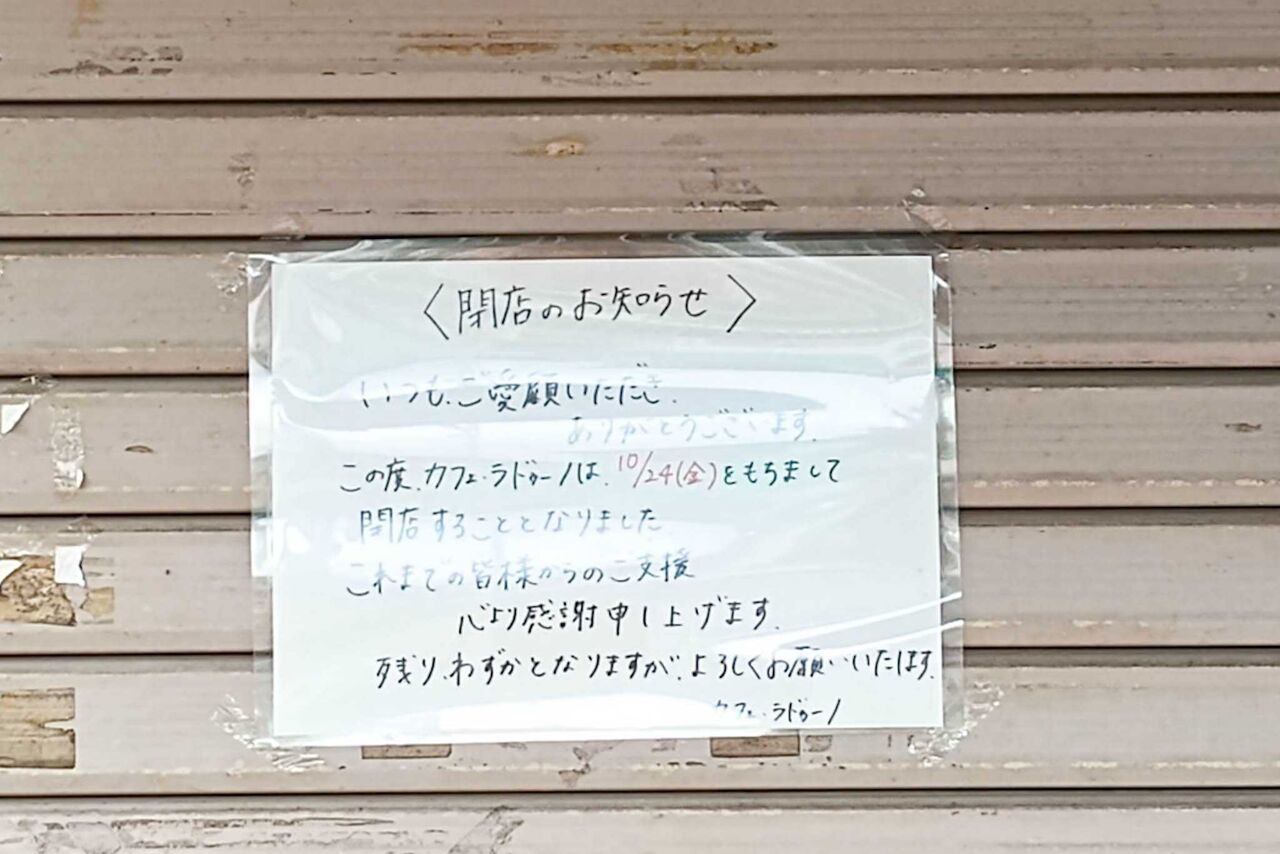 〈閉店のお知らせ〉
いつも、ご愛願いただき、
ありがとうございます。
この度、カフェ・ラドゥーノは、10/24(金)をもちまして
閉店することとなりました
これまでの皆様からのご支援
心より感謝申し上げます。
残り、わずかとなりますが、よろしくお願いいたします。
カフェ・ラドゥーノ